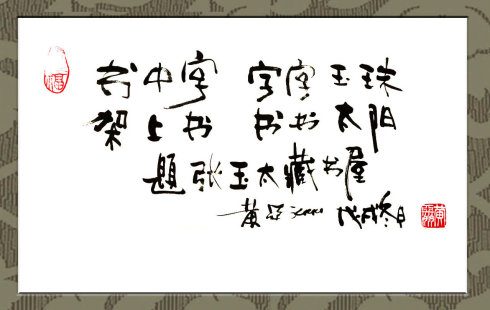 书中字 字字玉珠
架上书 书书太阳
题张玉太藏书屋
黄 戊戌冬月